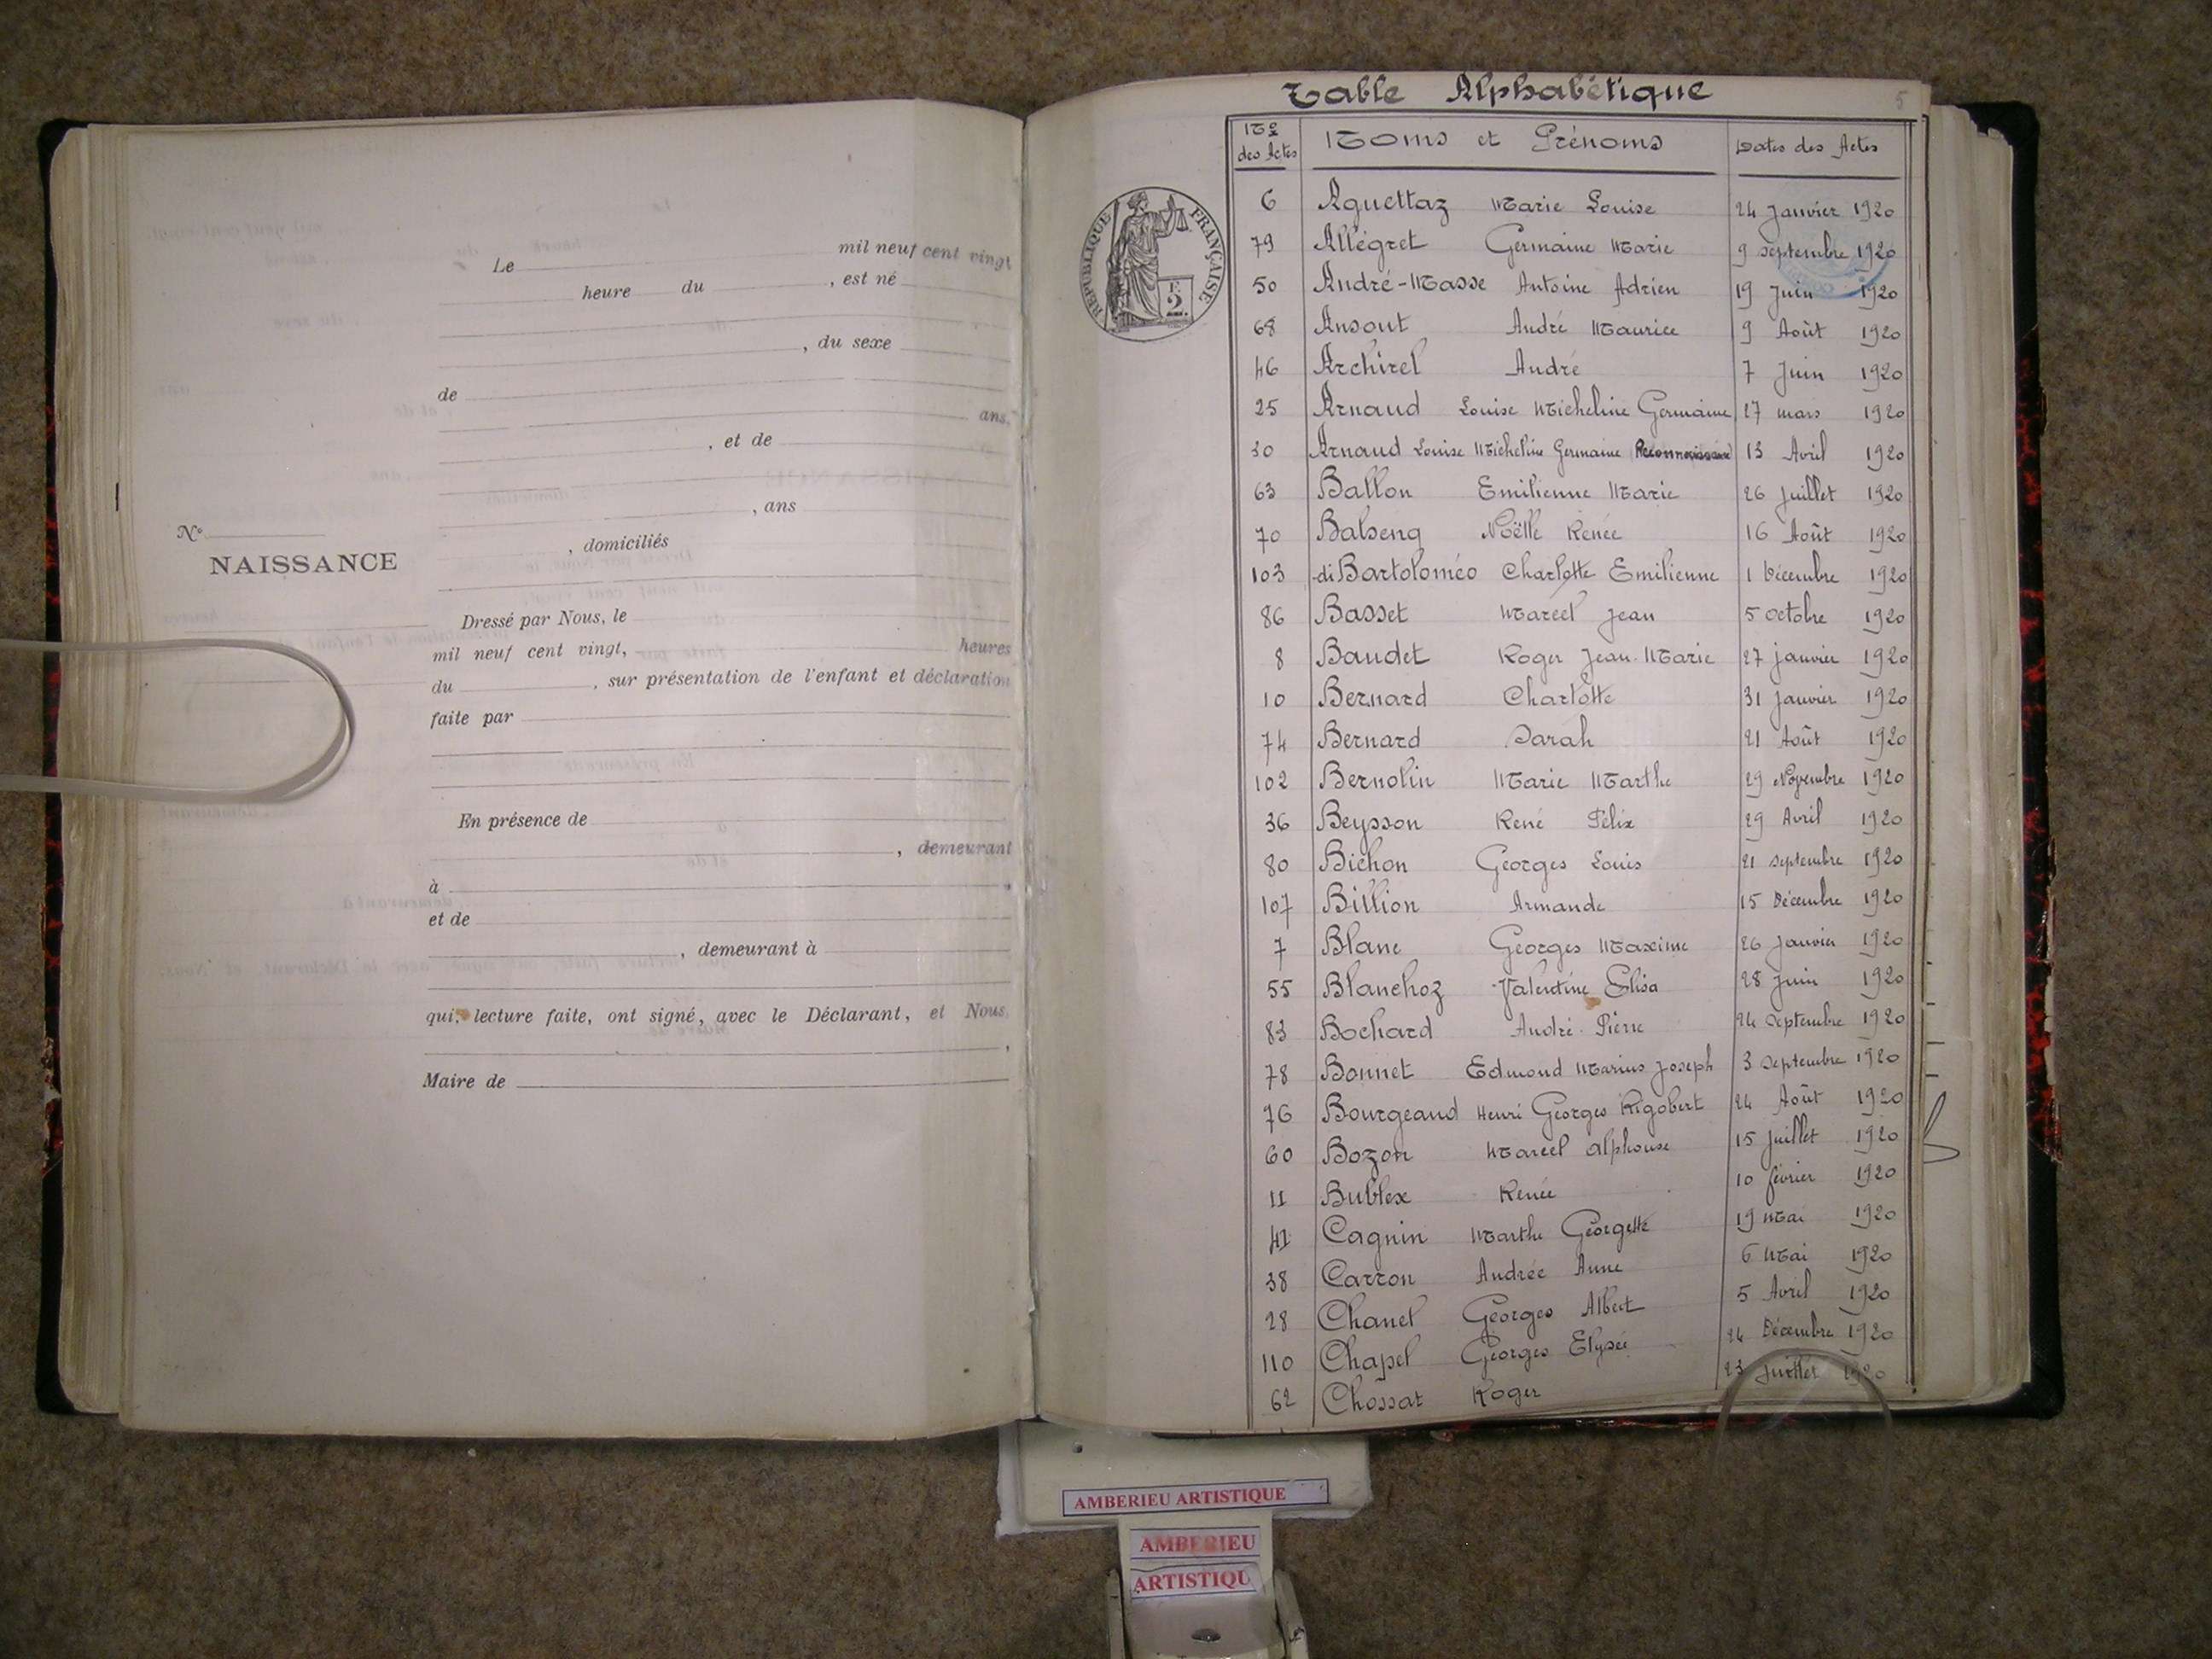 Le mil neuf cent vingt
heure du , est né
, du sexe
de
ans,
, et de
, ans
N°
, domiciliés
NAISSANCE
Dressé par Nous, le
mil neuf cent vingt, heures
du , sur présentation de l'enfant et déclaration
faite par
En présence de
, demeurant
à
et de
, demeurant à
qui, lecture faite, ont signé, avec le Déclarant, et Nous,
Maire de
Table Alphabétique
5
Nos des Actes Noms et Prénoms Dates des Actes
RÉPUBLIQUE FRANÇAISE
2
6 Aguettaz Marie Louise 24 Janvier 1920
79 Allégret Germaine Marie 9 septembre 1920
50 André-Masse Antoine Adrien 19 Juin 1920
68 Ansout André Maurice 9 Août 1920
46 Archirel André 7 Juin 1920
25 Arnaud Louise Micheline Germaine 27 mars 1920
30 Arnaud Louise Micheline Germaine (Reconnaissance) 13 Avril 1920
63 Ballon Emilienne Marie 26 Juillet 1920
70 Balseng Noëlle Renée 16 Août 1920
103 di Bartoloméo Charlotte Emilienne 1 Décembre 1920
86 Basset Marcel Jean 5 octobre 1920
8 Baudet Roger Jean-Marie 27 janvier 1920
10 Bernard Charlotte 31 Janvier 1920
74 Bernard Sarah 21 Août 1920
102 Bernolin Marie Marthe 29 Novembre 1920
36 Beysson René Félix 29 Avril 1920
80 Bichon Georges Louis 21 septembre 1920
107 Billion Armande 15 Décembre 1920
7 Blanc Georges Maxime 26 Janvier 1920
55 Blanchoz Valentine Elisa 28 Juin 1920
83 Bochard André Pierre 24 septembre 1920
78 Bonnet Edmond Marius Joseph 3 septembre 1920
76 Bourgeaud Henri Georges Rigobert 24 Août 1920
60 Bozon Marcel Alphonse 15 Juillet 1920
11 Bublex Renée 10 février 1920
41 Cagnin Marthe Georgette 19 Mai 1920
38 Carron Andrée Anne 6 Mai 1920
28 Chanel Georges Albert 5 Avril 1920
110 Chapel Georges Elysée 24 Décembre 1920
62 Chossat Roger 23 Juillet 1920
AMBERIEU ARTISTIQUE
AMBERIEU
ARTISTIQU